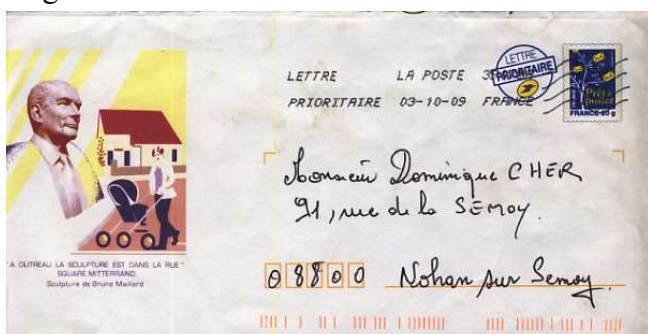 LETTRE LA POSTE
PRIORITAIRE 03-10-09 FRANCE
LETTRE
PRIORITAIRE
FRANCE 20 g
Monsieur Dominique CHER
91, rue de la SEMOY.
08800 Nohan sur Semoy.
"A OUTREAU LA SCULPTURE EST DANS LA RUE"
SQUARE MITTERRAND
Sculpture de Bruno Maillard